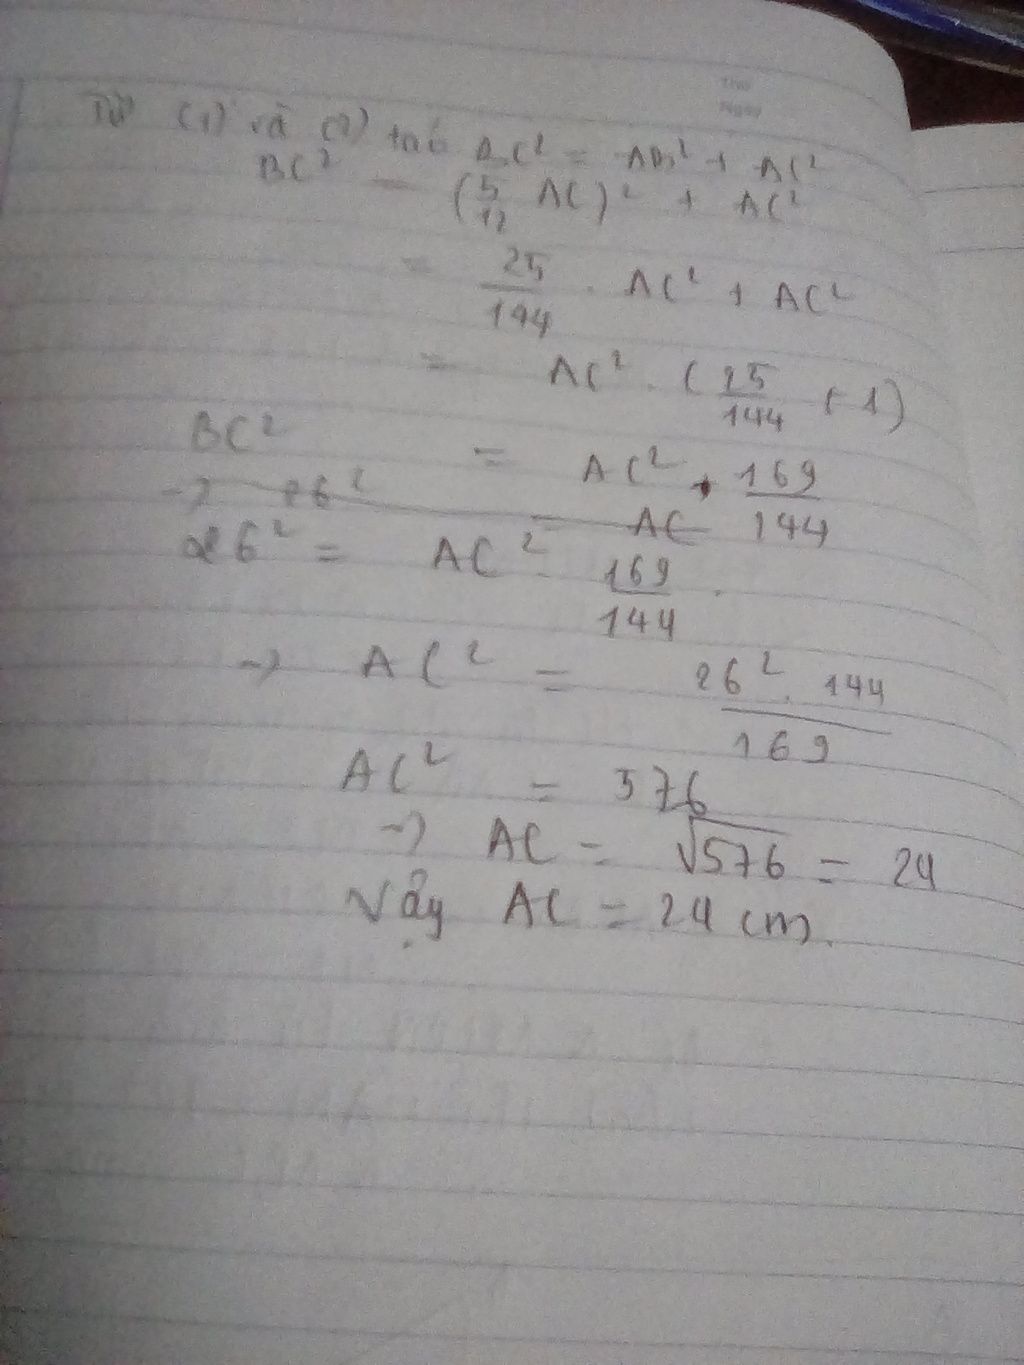 Thứ
Ngày
Từ (1) và (2) ta có BC² = AB² + AC²
BC² = (5/12 AC)² + AC²
= 25/144 . AC² + AC²
= AC² . (25/144 + 1)
BC² = AC² . 169/144
→ 26² = AC
26² = AC² . 169/144 .
→ AC² = 26² . 144 / 169
AC² = 576
→ AC = √576 = 24
Vậy AC = 24 cm.